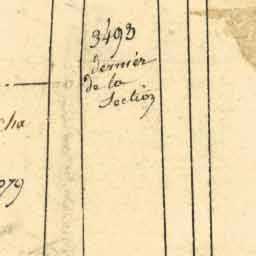 3493
dernier
de la
Section
cha
079